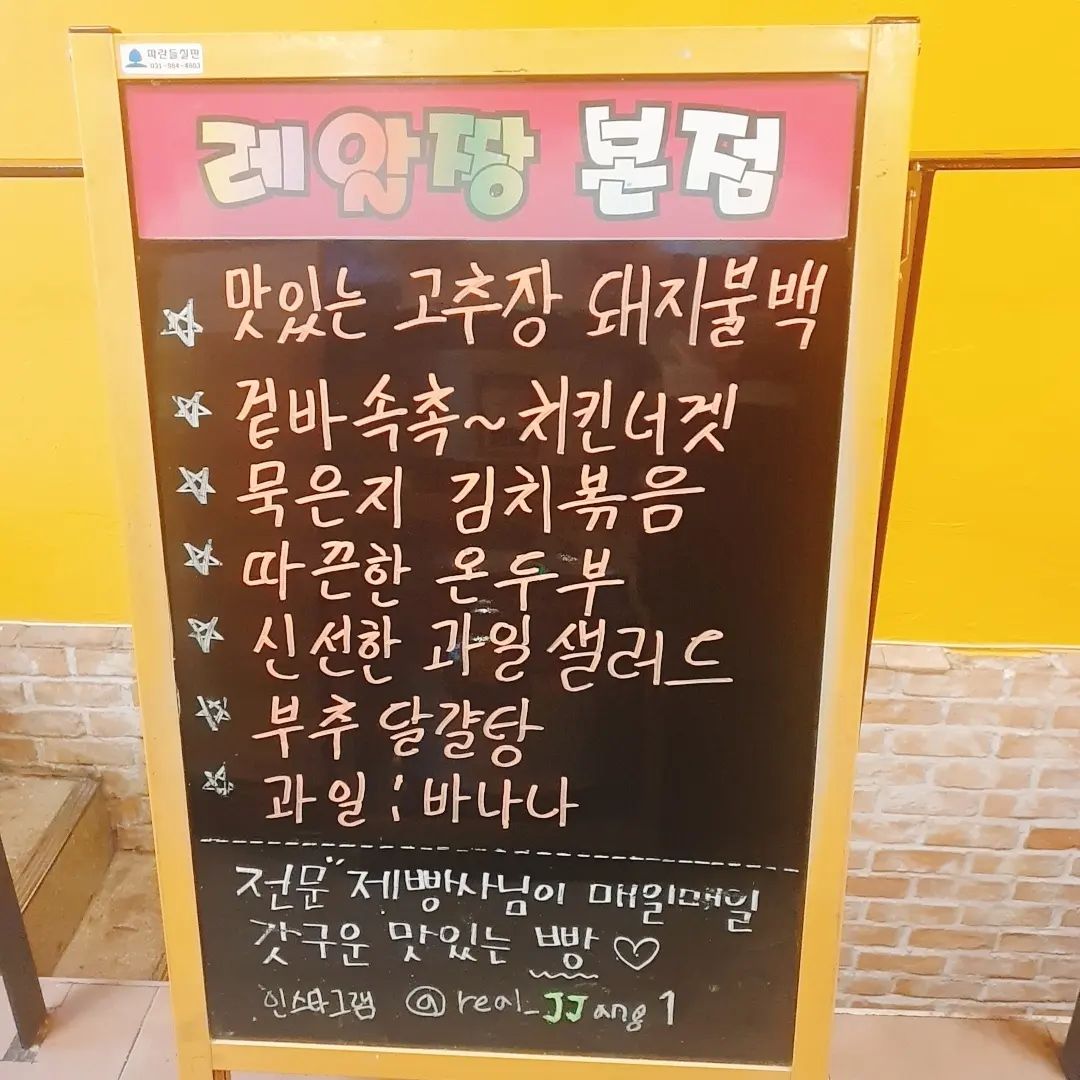 파란들칠판
031-964-4603
레알짱 본점
맛있는 고추장 돼지불백
겉바속촉~치킨너겟
묵은지 김치볶음
따끈한 온두부
신선한 과일샐러드
부추 달걀탕
과일 : 바나나
전문" 제빵사님이 매일매일
갓구운 맛있는 빵♡
인스타그램 @real_JJang1